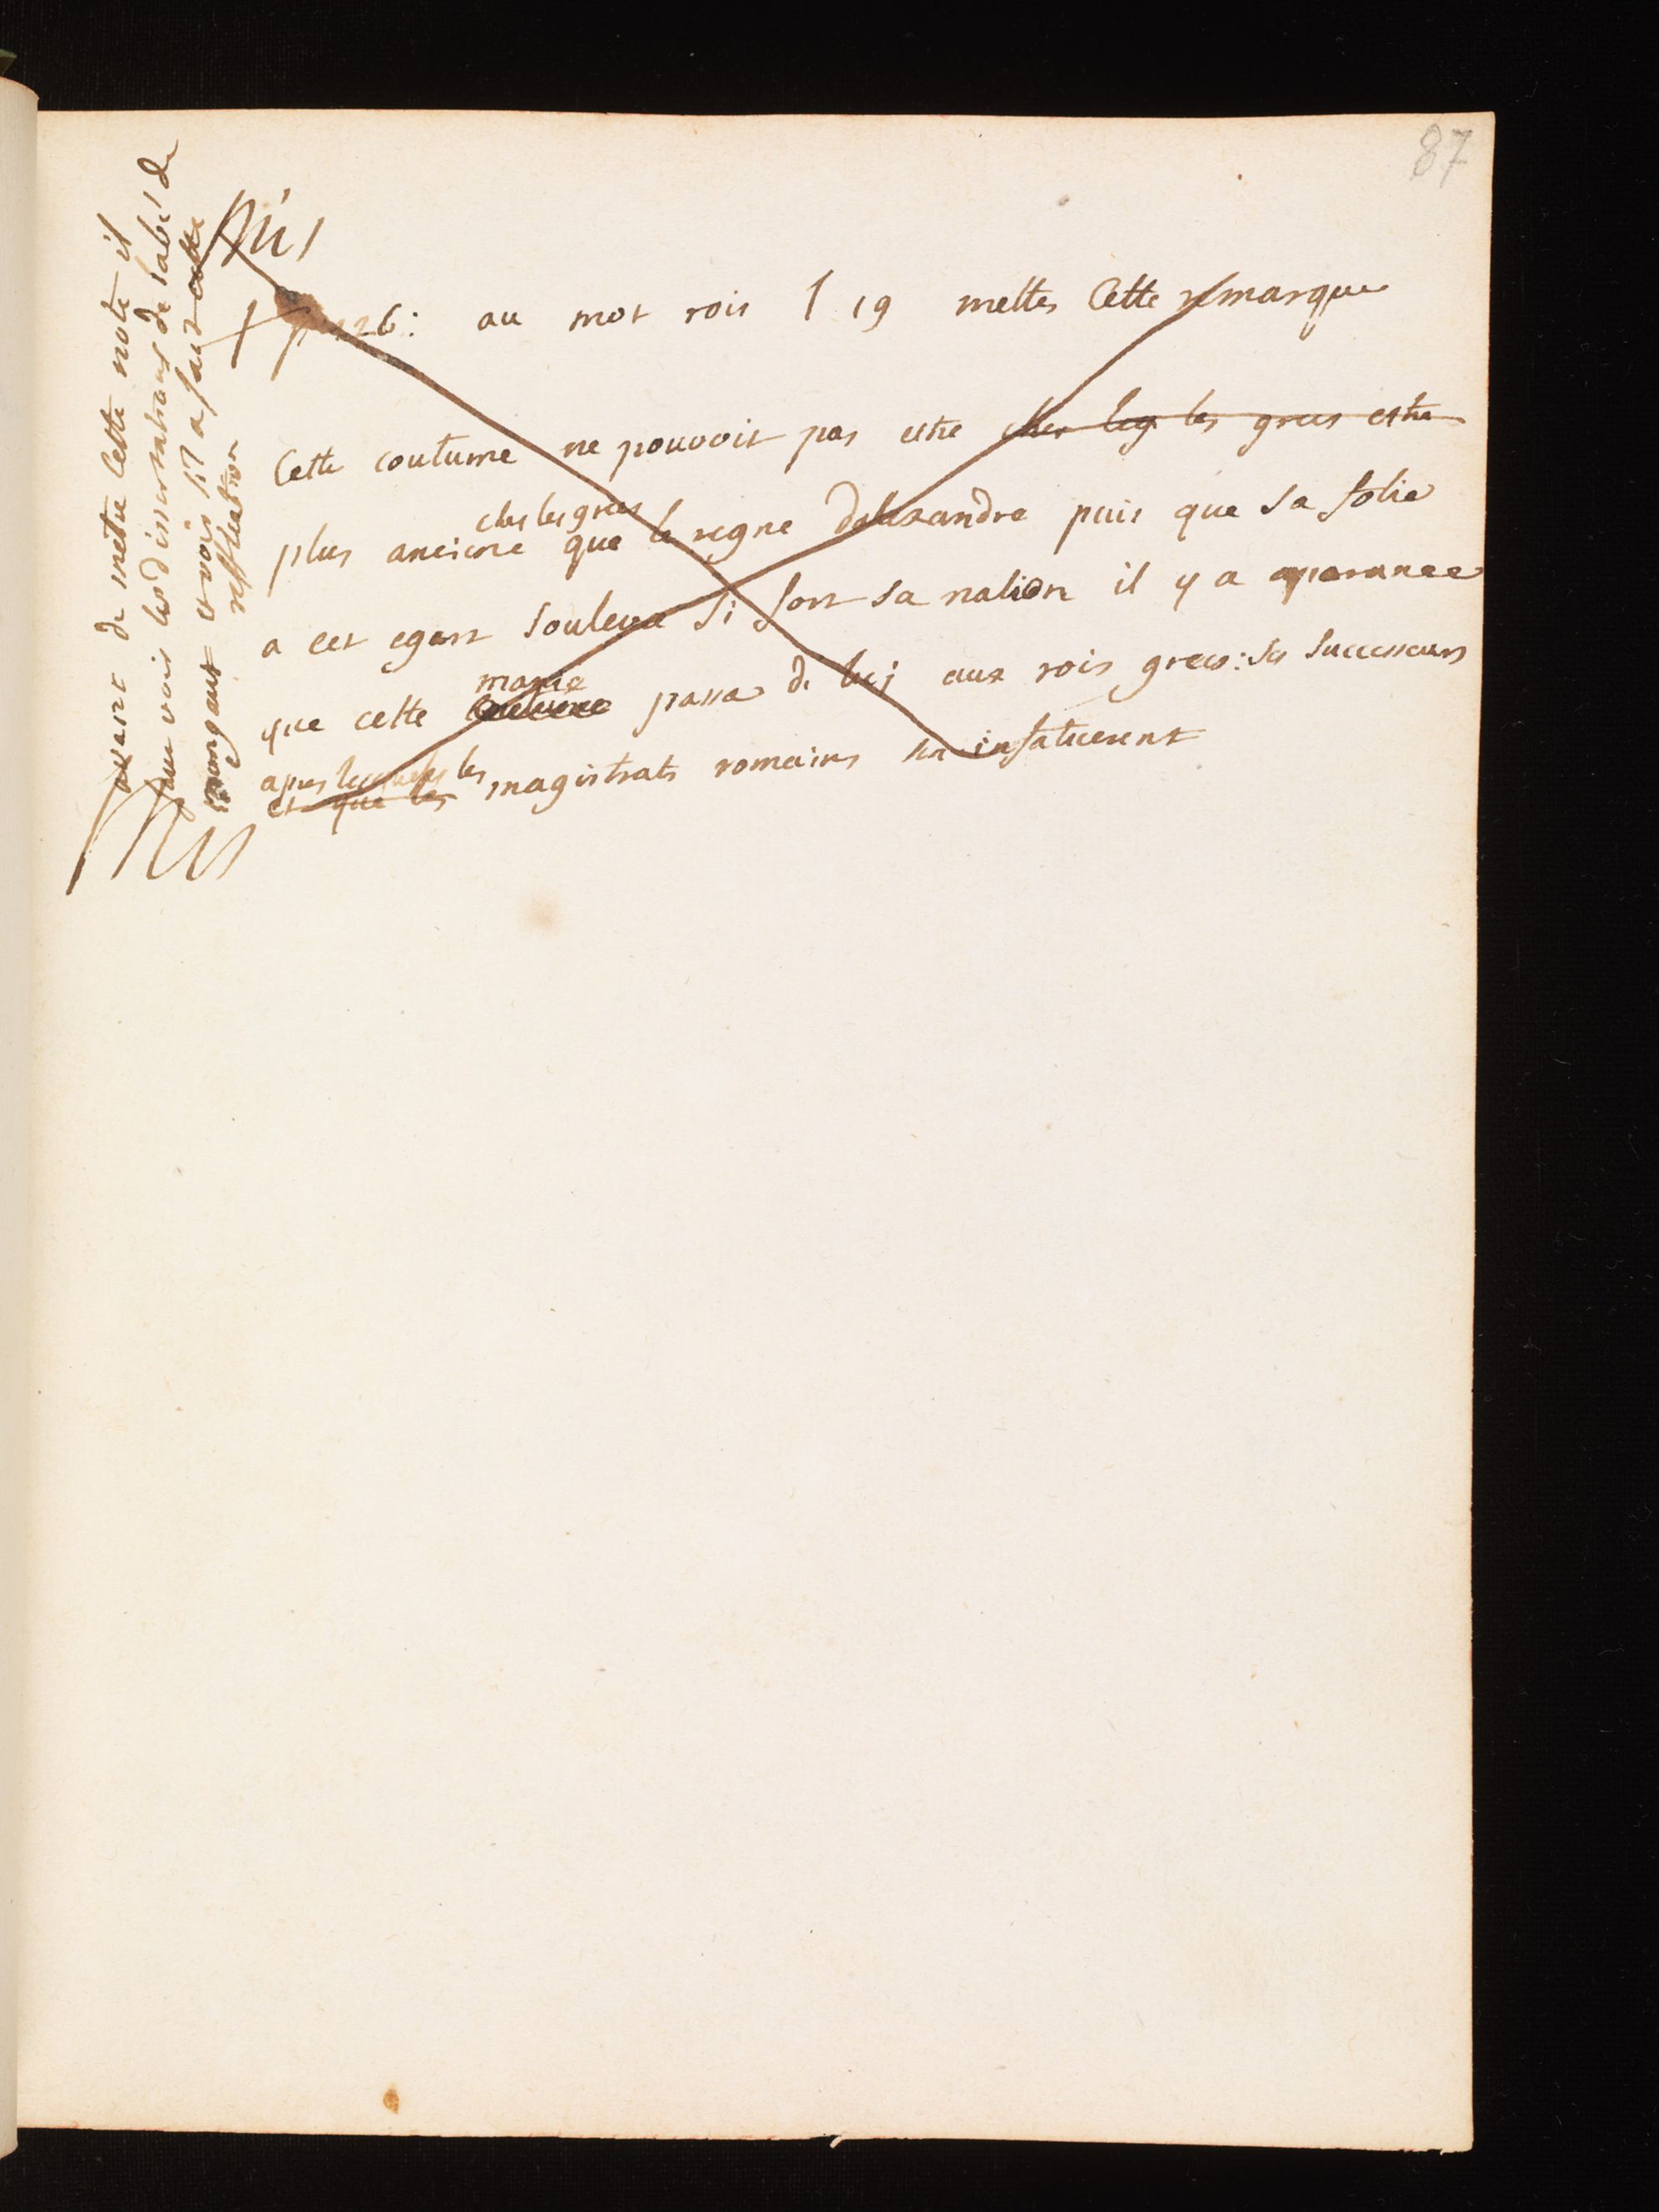 87
mis
p 126: au mot rois l 19 mettes Cette remarque
Cette coutume ne pouvoit pas estre ches les grecs estre
ches les grecs
plus anciene que le regne dalexandre puis que sa folie
a cet egart souleva si fort sa nation il y a aparance
manie
que cette coutume passa de luj aux rois grecs: ses successeurs
apres lesquels les
et que les magistrats romains sen infatuerent
avant de metre cette note il
faut voir les dissertations de labé de
mongaut et voir sil a fait cette
reflection
mis